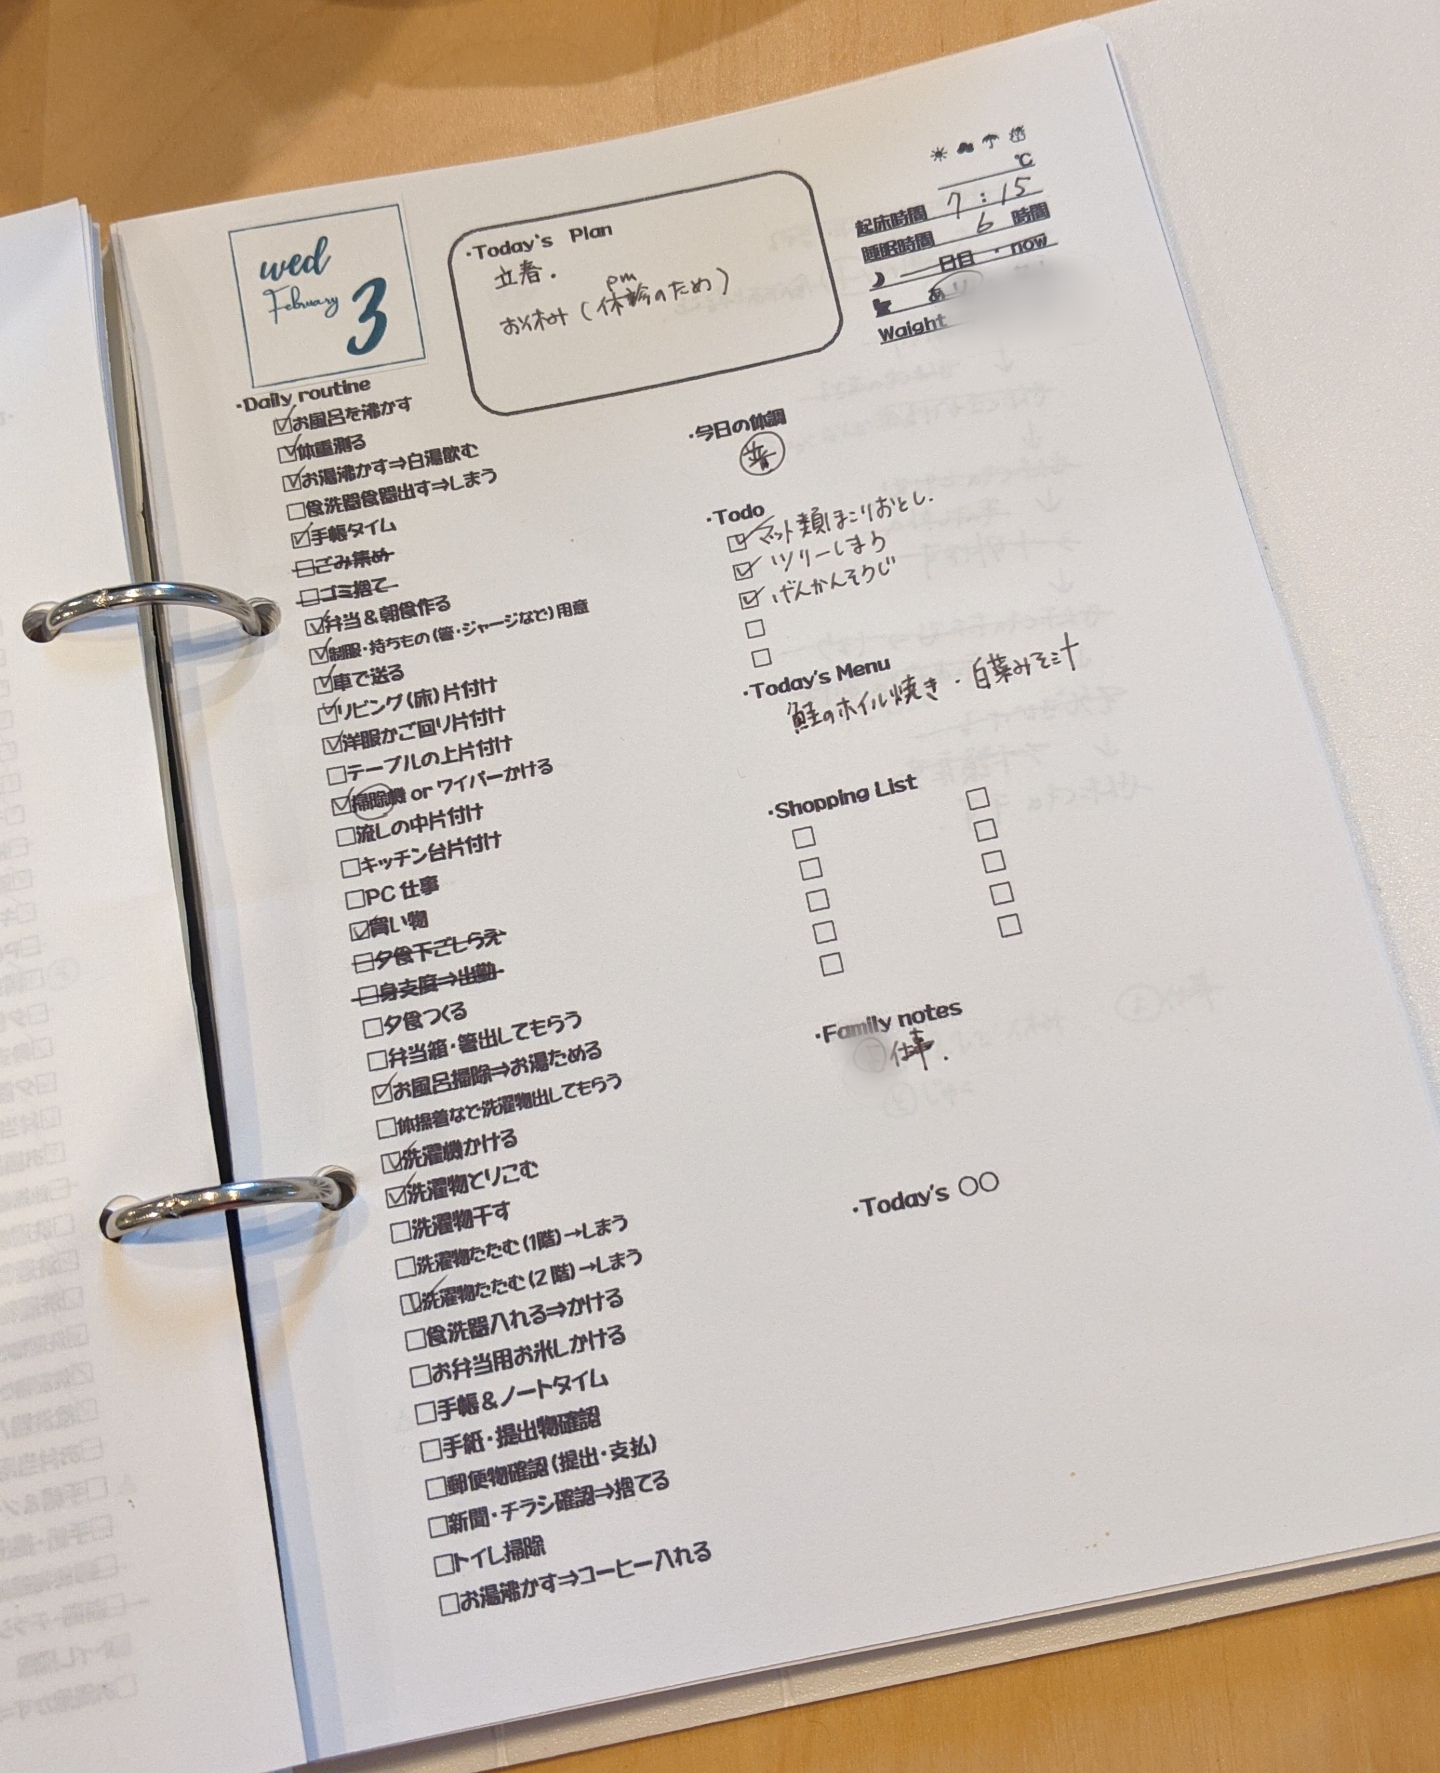 wed
February
3
・Today's Plan
立春.
pm
お休み(休診のため)
℃
起床時間 7:15
睡眠時間 6 時間
日目・now
あり
Waight
・Daily routine
お風呂を沸かす
体重測る
お湯沸かす⇒白湯飲む
食洗器食器出す⇒しまう
手帳タイム
ごみ集め
ゴミ捨て
弁当&朝食作る
制服・持ちもの(箸・ジャージなど)用意
車で送る
リビング(床)片付け
洋服かご回り片付け
テーブルの上片付け
掃除機 or ワイパーかける
流しの中片付け
キッチン台片付け
PC 仕事
買い物
夕食下ごしらえ
身支度⇒出勤
夕食つくる
弁当箱・箸出してもらう
お風呂掃除⇒お湯ためる
体操着など洗濯物出してもらう
洗濯機かける
洗濯物とりこむ
洗濯物干す
洗濯物たたむ(1階)→しまう
洗濯物たたむ(2 階)→しまう
食洗器入れる⇒かける
お弁当用お米しかける
手帳&ノートタイム
手紙・提出物確認
郵便物確認(提出・支払)
新聞・チラシ確認⇒捨てる
トイレ掃除
お湯沸かす⇒コーヒー入れる
・今日の体調
普
・Todo
マット類ほこりおとし.
ツリーしまう
げんかんそうじ
・Today's Menu
鮭のホイル焼き・白菜みそ汁
・Shopping List
・Family notes
仕事.
・Today's ○○